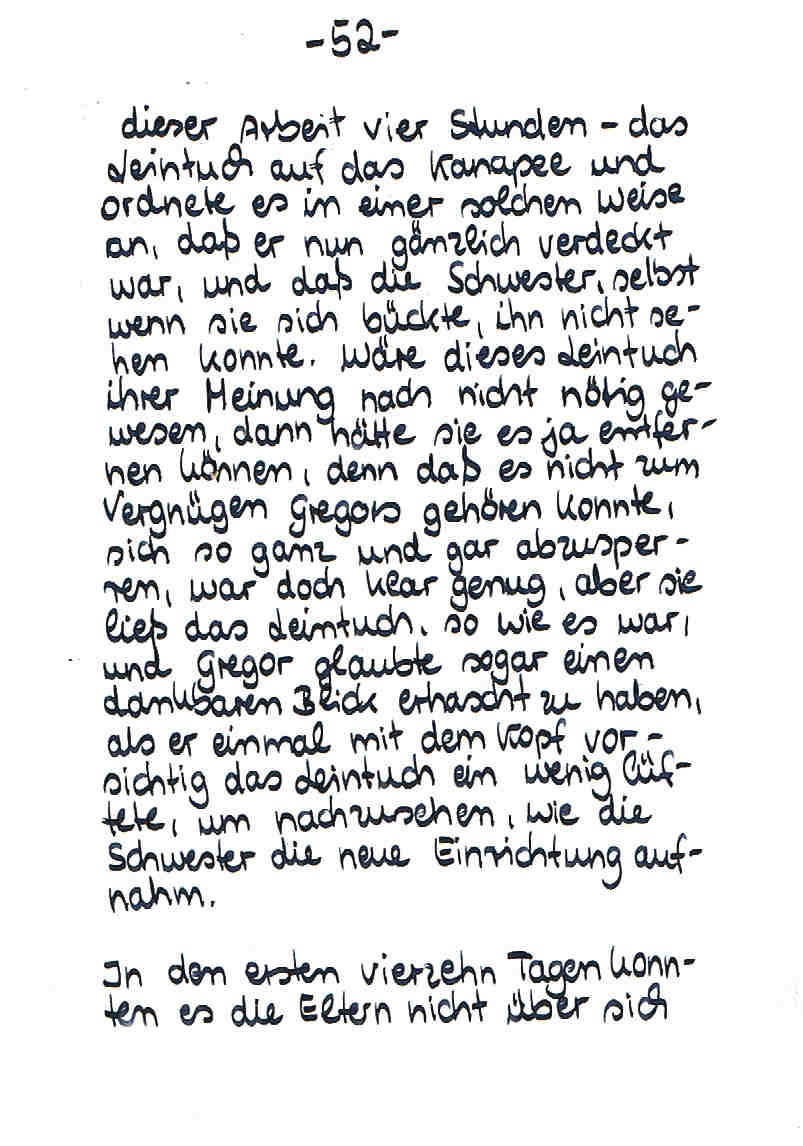 -52-
dieser Arbeit vier Stunden - das
Leintuch auf das Kanapee und
ordnete es in einer solchen Weise
an, daß er nun gänzlich verdeckt
war, und daß die Schwester, selbst
wenn sie sich bückte, ihn nicht se-
hen konnte. Wäre dieses Leintuch
ihrer Meinung nach nicht nötig ge-
wesen, dann hätte sie es ja entfer-
nen können, denn daß es nicht zum
Vergnügen Gregors gehören konnte,
sich so ganz und gar abzusper-
ren, war doch klar genug, aber sie
ließ das Leintuch, so wie es war,
und Gregor glaubte sogar einen
dankbaren Blick erhascht zu haben,
als er einmal mit dem Kopf vor-
sichtig das Leintuch ein wenig lüf-
tete, um nachzusehen, wie die
Schwester die neue Einrichtung auf-
nahm.
In den ersten vierzehn Tagen konn-
ten es die Eltern nicht über sich